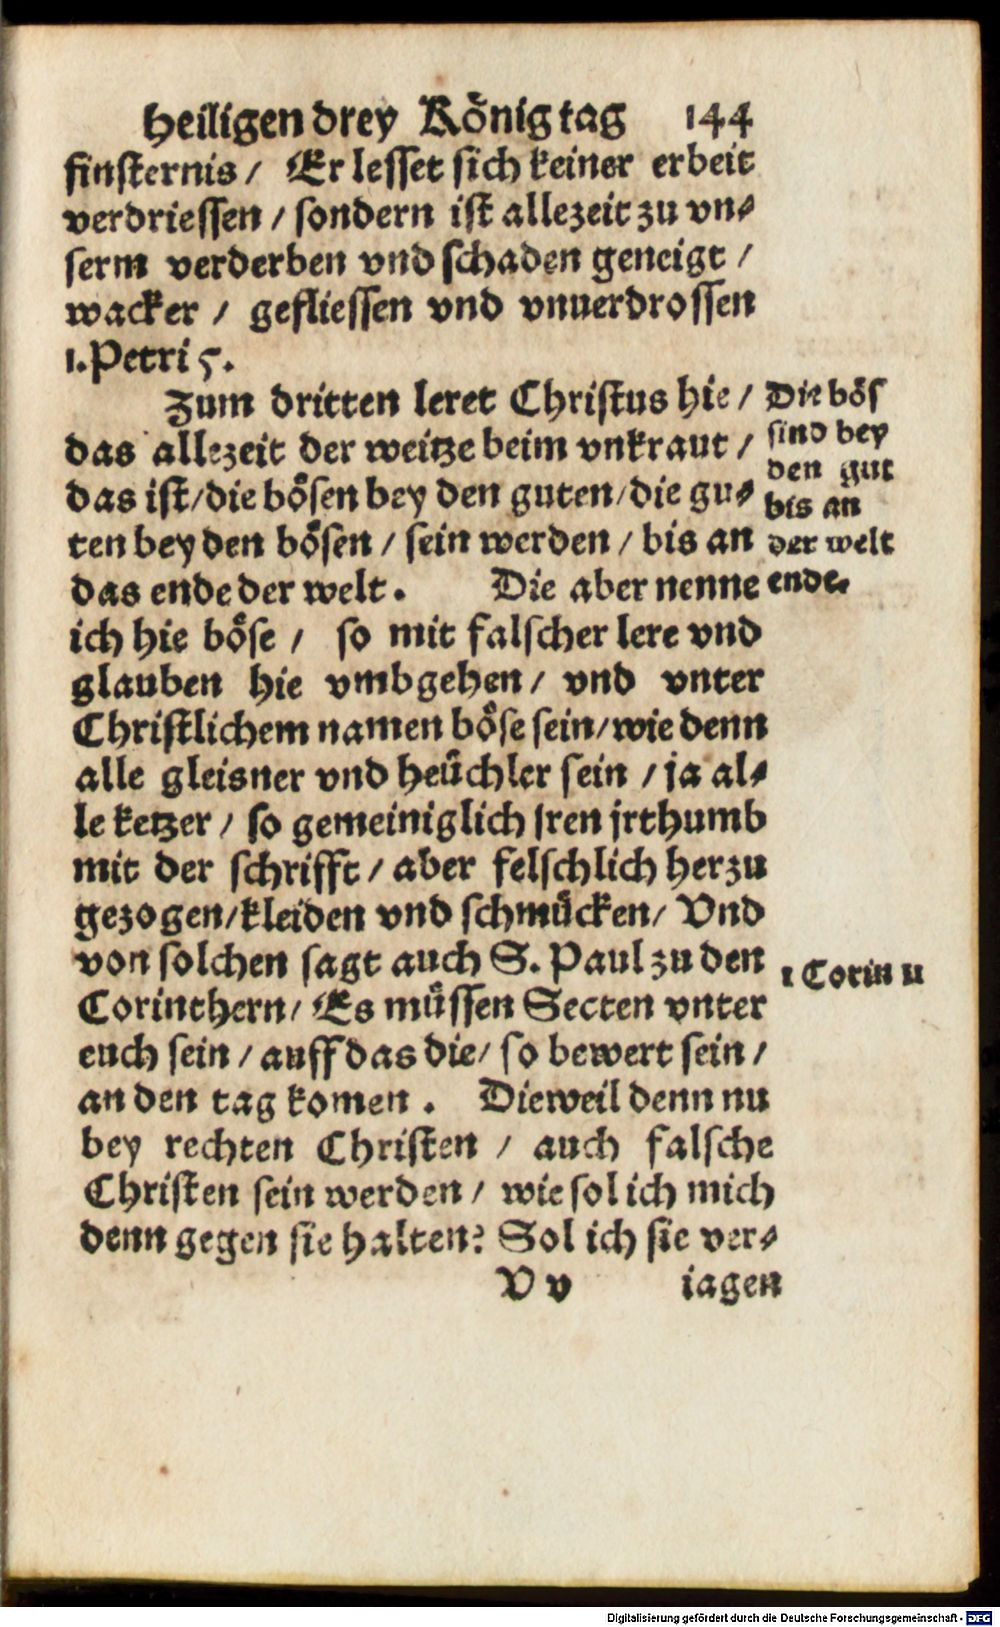 Heiligen drey Königtag 144
finsternis / Er lesset sich keiner erbeit
verdriessen / sondern ist allezeit zu vn⸗
serm verderben vnd schaden geneigt /
wacker / gefliessen vnd vnuerdrossen
1. Petri 5.
Zum dritten leret Christus hie /
das allezeit der weitze beim vnkraut /
das ist / die bösen bey den guten / die gu⸗
ten bey den bösen / sein werden / bis an
das ende der welt. Die aber nenne
ich hie böse / so mit falscher lere vnd
glauben hie vmbgehen / vnd vnter
Christlichem namen böse sein / wie denn
alle gleisner vnd heüchler sein / ja al⸗
le ketzer / so gemeiniglich jren jrthumb
mit der schrifft / aber felschlich herzu
gezogen / kleiden vnd schmücken / Vnd
von solchen sagt auch S. Paul zu den
Corinthern / Es müssen Secten vnter
euch sein / auff das die / so bewert sein /
an den tag komen. Dieweil denn nu
bey rechten Christen / auch falsche
Christen sein werden / wie sol ich mich
denn gegen sie halten? Sol ich sie ver⸗
V v iagen
Die bös
sind bey
den gut
bis an
der welt
ende.
1 Corin 11
Digitalisierung gefördert durch die Deutsche Forschungsgemeinschaft - DFG